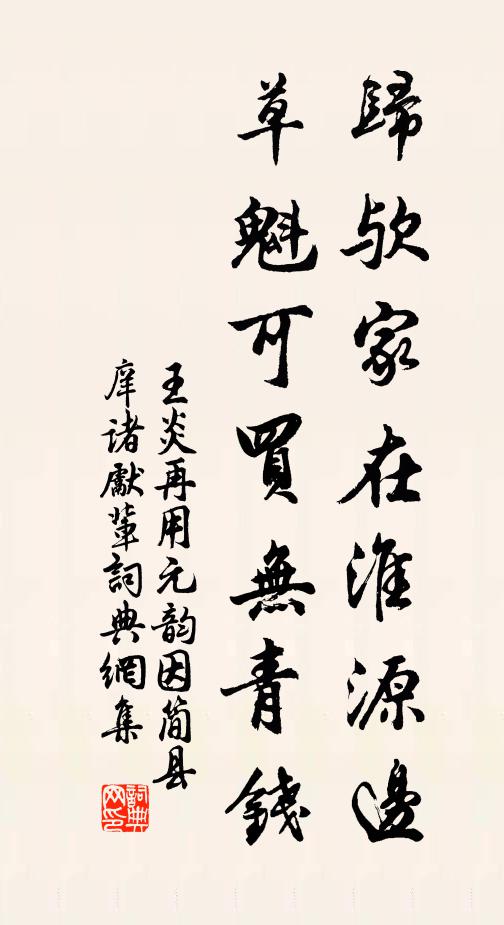 歸欤家在淮源邊
草魁可買無青錢
王炎再用元韵因简县
庠诸獻輩詞典網集
詞典
网印